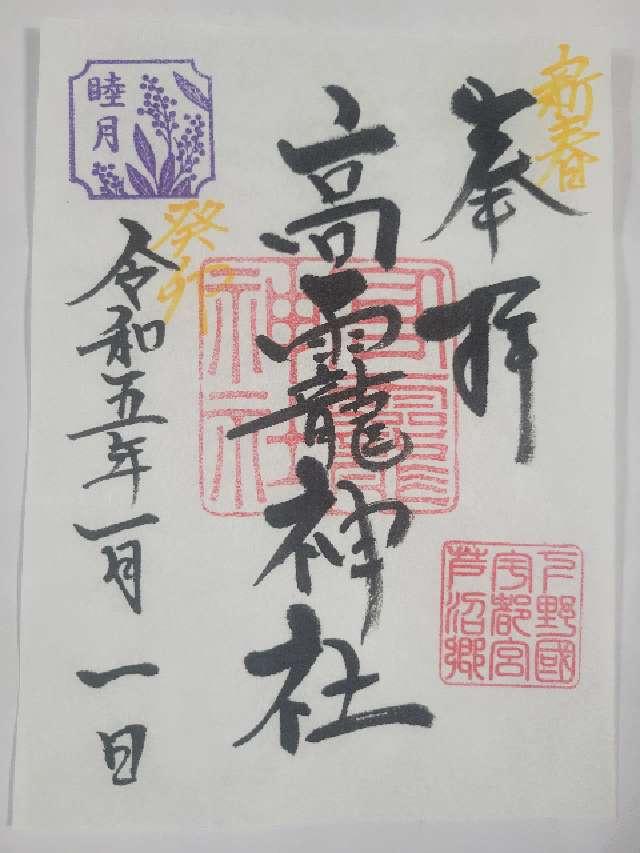 新春
奉拝
高龗神社
高龗
神社
下野國
宇都宮
芦沼郷
癸卯
令和五年一月一日
睦月